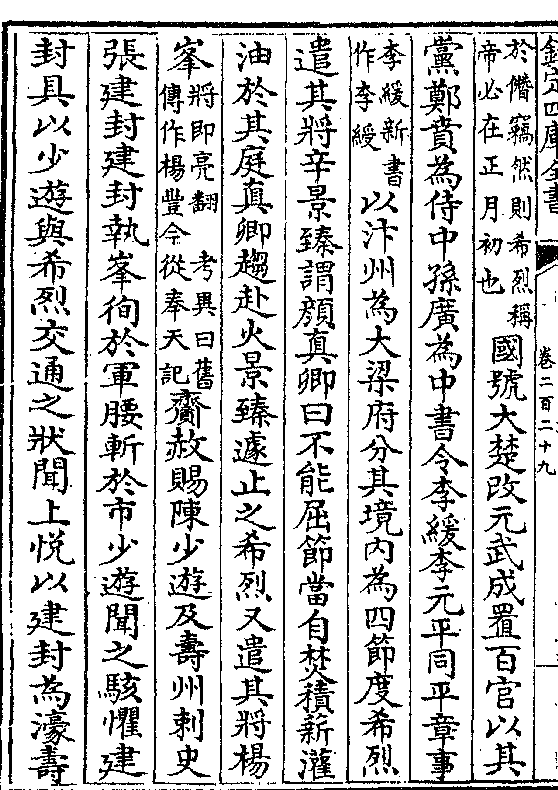 欽定四庫全書
卷二百二十九
於僭竊然則希烈稱
帝必在正月初也
國號大楚改元武成置百官以其
黨鄭賁為侍中孫廣為中書令李緩李元平同平章事
李緩新書
作李綬
以汴州為大梁府分其境內為四節度希烈
遣其將辛景臻謂顔真卿曰不能屈節當自焚積薪灌
油於其庭真卿趨赴火景臻遽止之希烈又遣其將楊
峯
將即亮翻 考異曰舊
傳作楊豐今從奉天記
齎赦賜陳少遊及壽州刺史
張建封建封執峯徇於軍腰斬於市少遊聞之駭懼建
封具以少遊與希烈交通之狀聞上悅以建封為濠壽